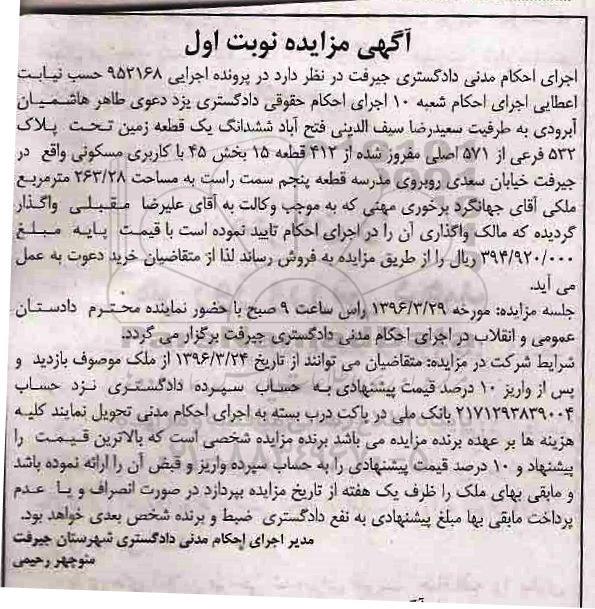 آگهی مزایده نوبت اول
اجرای احکام مدنی دادگستری جیرفت در نظر دارد در پرونده اجرایی ۹۵۲۱۶۸ حسب نیابت
اعطایی اجرای احکام شعبه ۱۰ اجرای احکام حقوقی دادگستری یزد دعوی طاهر هاشمیان
آبرودی به طرفیت سعیدرضا سیف الدینی فتح آباد ششدانگ یک قطعه زمین تحت پلاک
۵۳۲ فرعی از ۵۷۱ اصلی مفروز شده از ۴۱۲ قطعه ۱۵ بخش ۴۵ با کاربری مسکونی واقع در
جیرفت خیابان سعدی روبروی مدرسه قطعه پنجم سمت راست به مساحت ۲۶۳/۲۸ مترمربع
ملکی آقای جهانگرد برخوری مهنی که به موجب وکالت به آقای علیرضا مقبلی واگذار
گردیده که مالک واگذاری آن را در اجرای احکام تایید نموده است با قیمت پایه مبلغ
۳۹۴/۹۲۰/۰۰۰ ریال را از طریق مزایده به فروش رساند لذا از متقاضیان خرید دعوت به عمل
می آید.
جلسه مزایده: مورخه ۱۳۹۶/۳/۲۹ راس ساعت ۹ صبح با حضور نماینده محترم دادستان
عمومی و انقلاب در اجرای احکام مدنی دادگستری جیرفت برگزار می گردد.
شرایط شرکت در مزایده: متقاضیان می توانند از تاریخ ۱۳۹۶/۳/۲۴ از ملک موصوف بازدید و
پس از واریز ۱۰ درصد قیمت پیشنهادی به حساب سپرده دادگستری نزد حساب
۲۱۷۱۲۹۳۸۳۹۰۰۴ بانک ملی در پاکت درب بسته به اجرای احکام مدنی تحویل نمایند کلیه
هزینه ها بر عهده برنده مزایده می باشد برنده مزایده شخصی است که بالاترین قیمت را
پیشنهاد و ۱۰ درصد قیمت پیشنهادی را به حساب سپرده واریز و قبض آن را ارائه نموده باشد
و مابقی بهای ملک را ظرف یک هفته از تاریخ مزایده بپردازد در صورت انصراف و یا عدم
پرداخت مابقی بها مبلغ پیشنهادی به نفع دادگستری ضبط و برنده شخص بعدی خواهد بود.
مدیر اجرای احکام مدنی دادگستری شهرستان جیرفت
منوچهر رحیمی